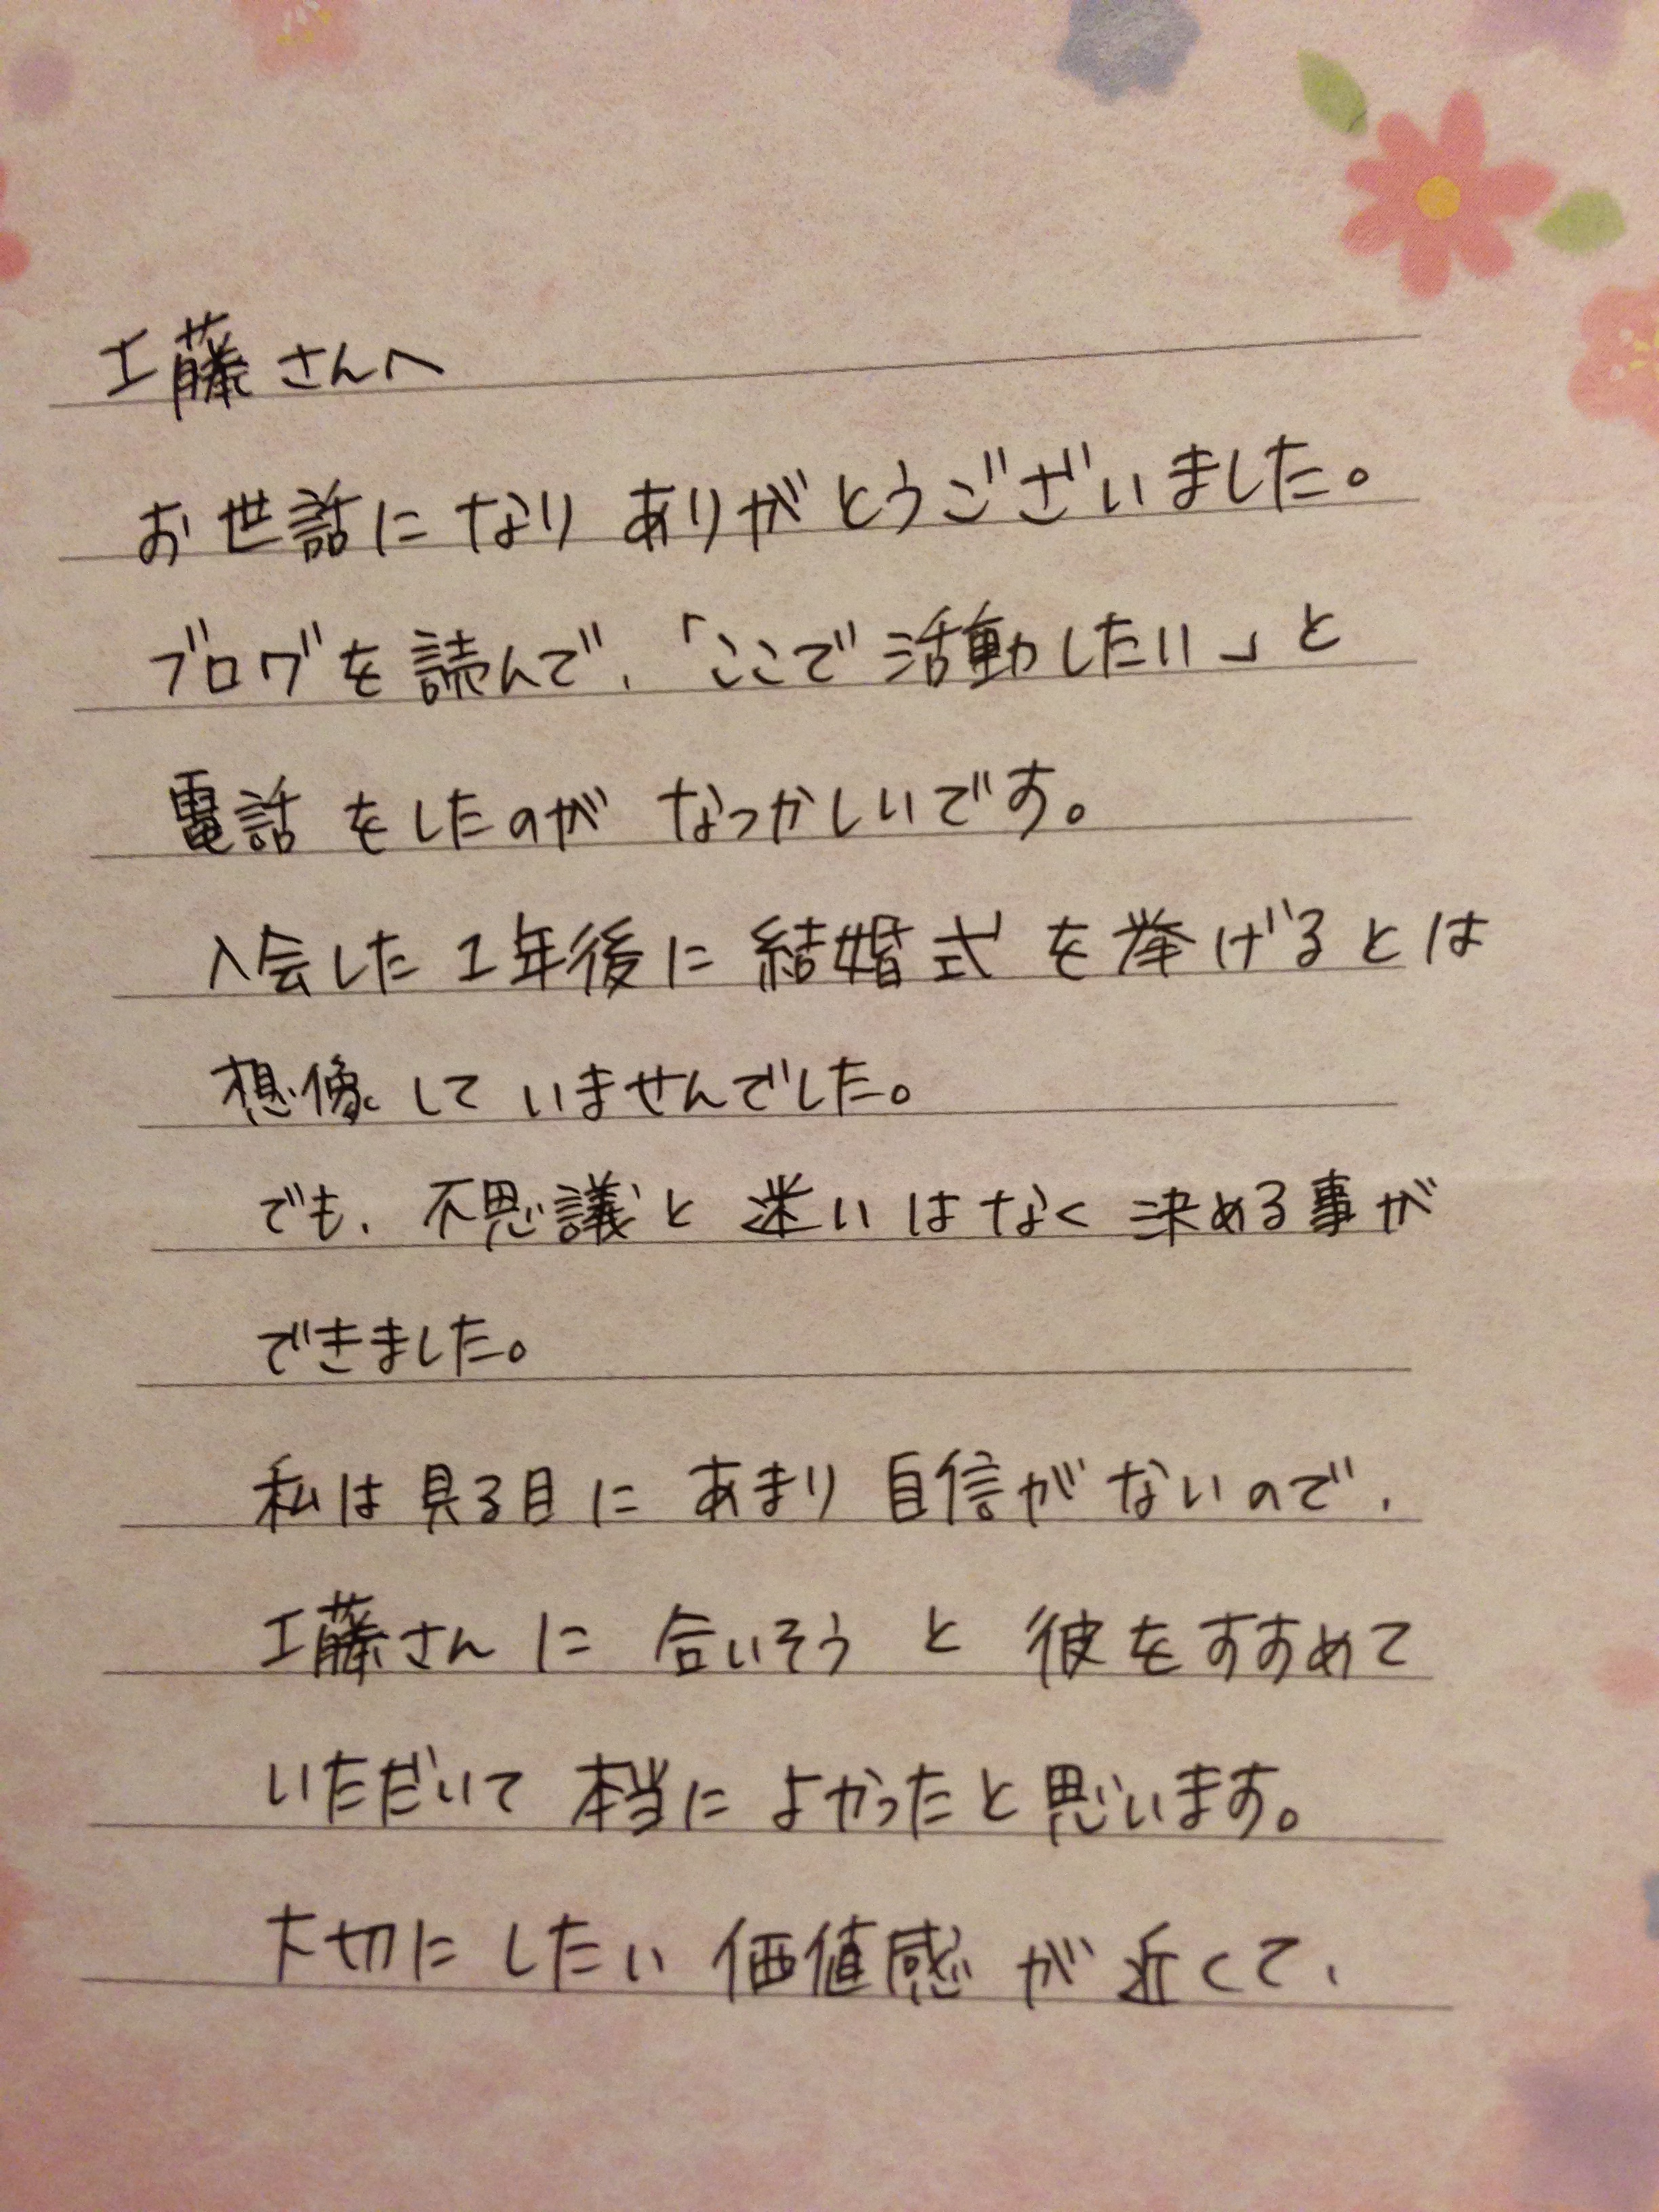 工藤さんへ
お世話になりありがとうございました。
ブログを読んで、「ここで活動したい」と
電話をしたのがなつかしいです。
入会した1年後に結婚式を挙げるとは
想像していませんでした。
でも、不思議と迷いはなく決める事が
できました。
私は見る目にあまり自信がないので、
工藤さんに合いそうと彼をすすめて
いただいて本当によかったと思います。
大切にしたい価値感が近くて、